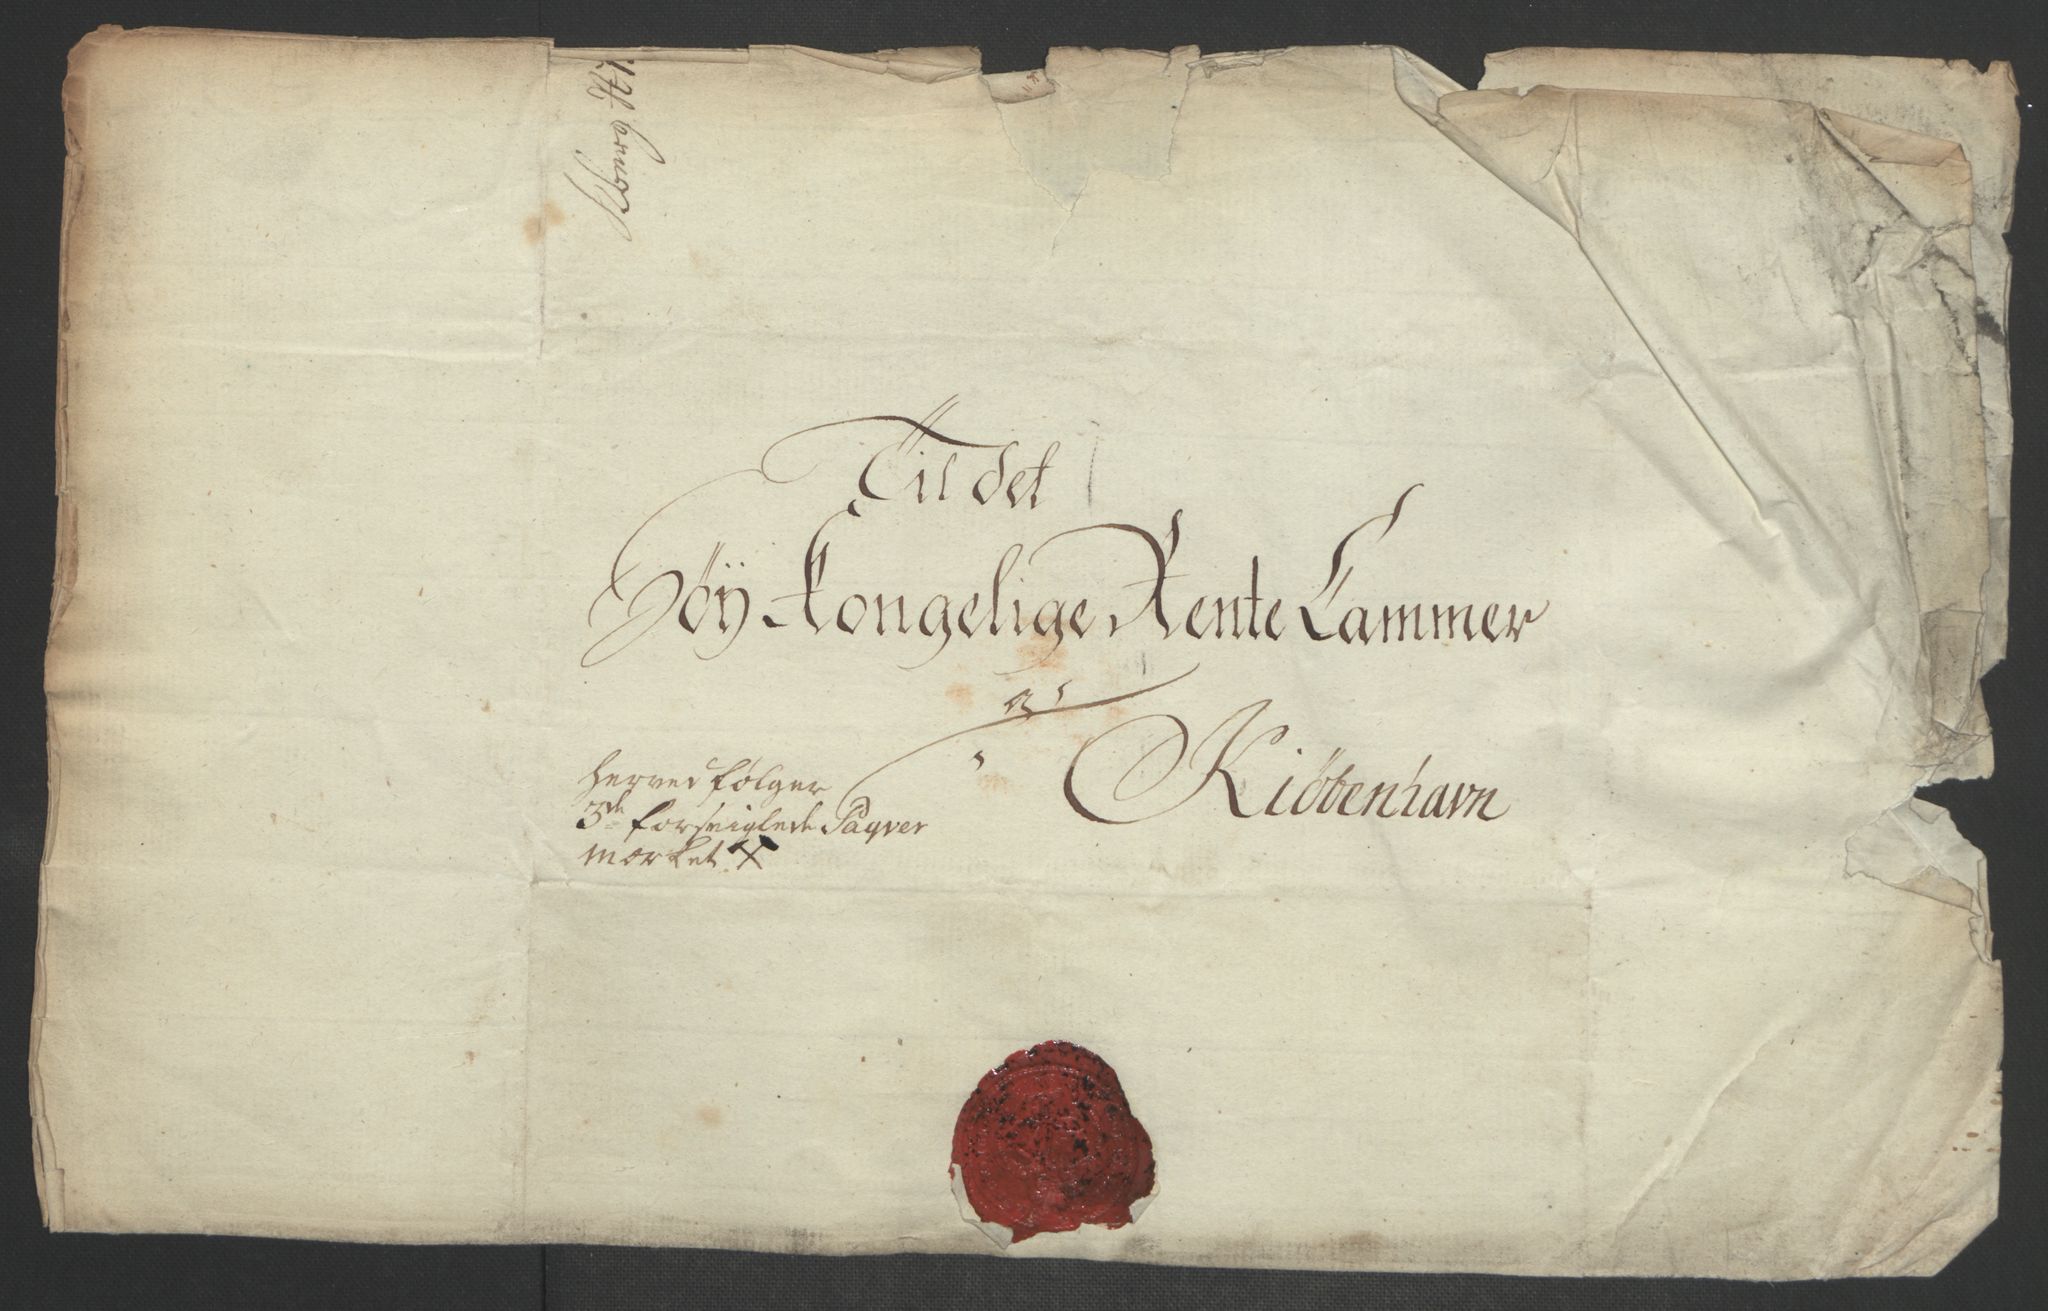 Til det
Høÿ Kongelige Rente Cammer
a
Kiöbenhavn
herved følger
3de forseiglede Paqver
mærket X